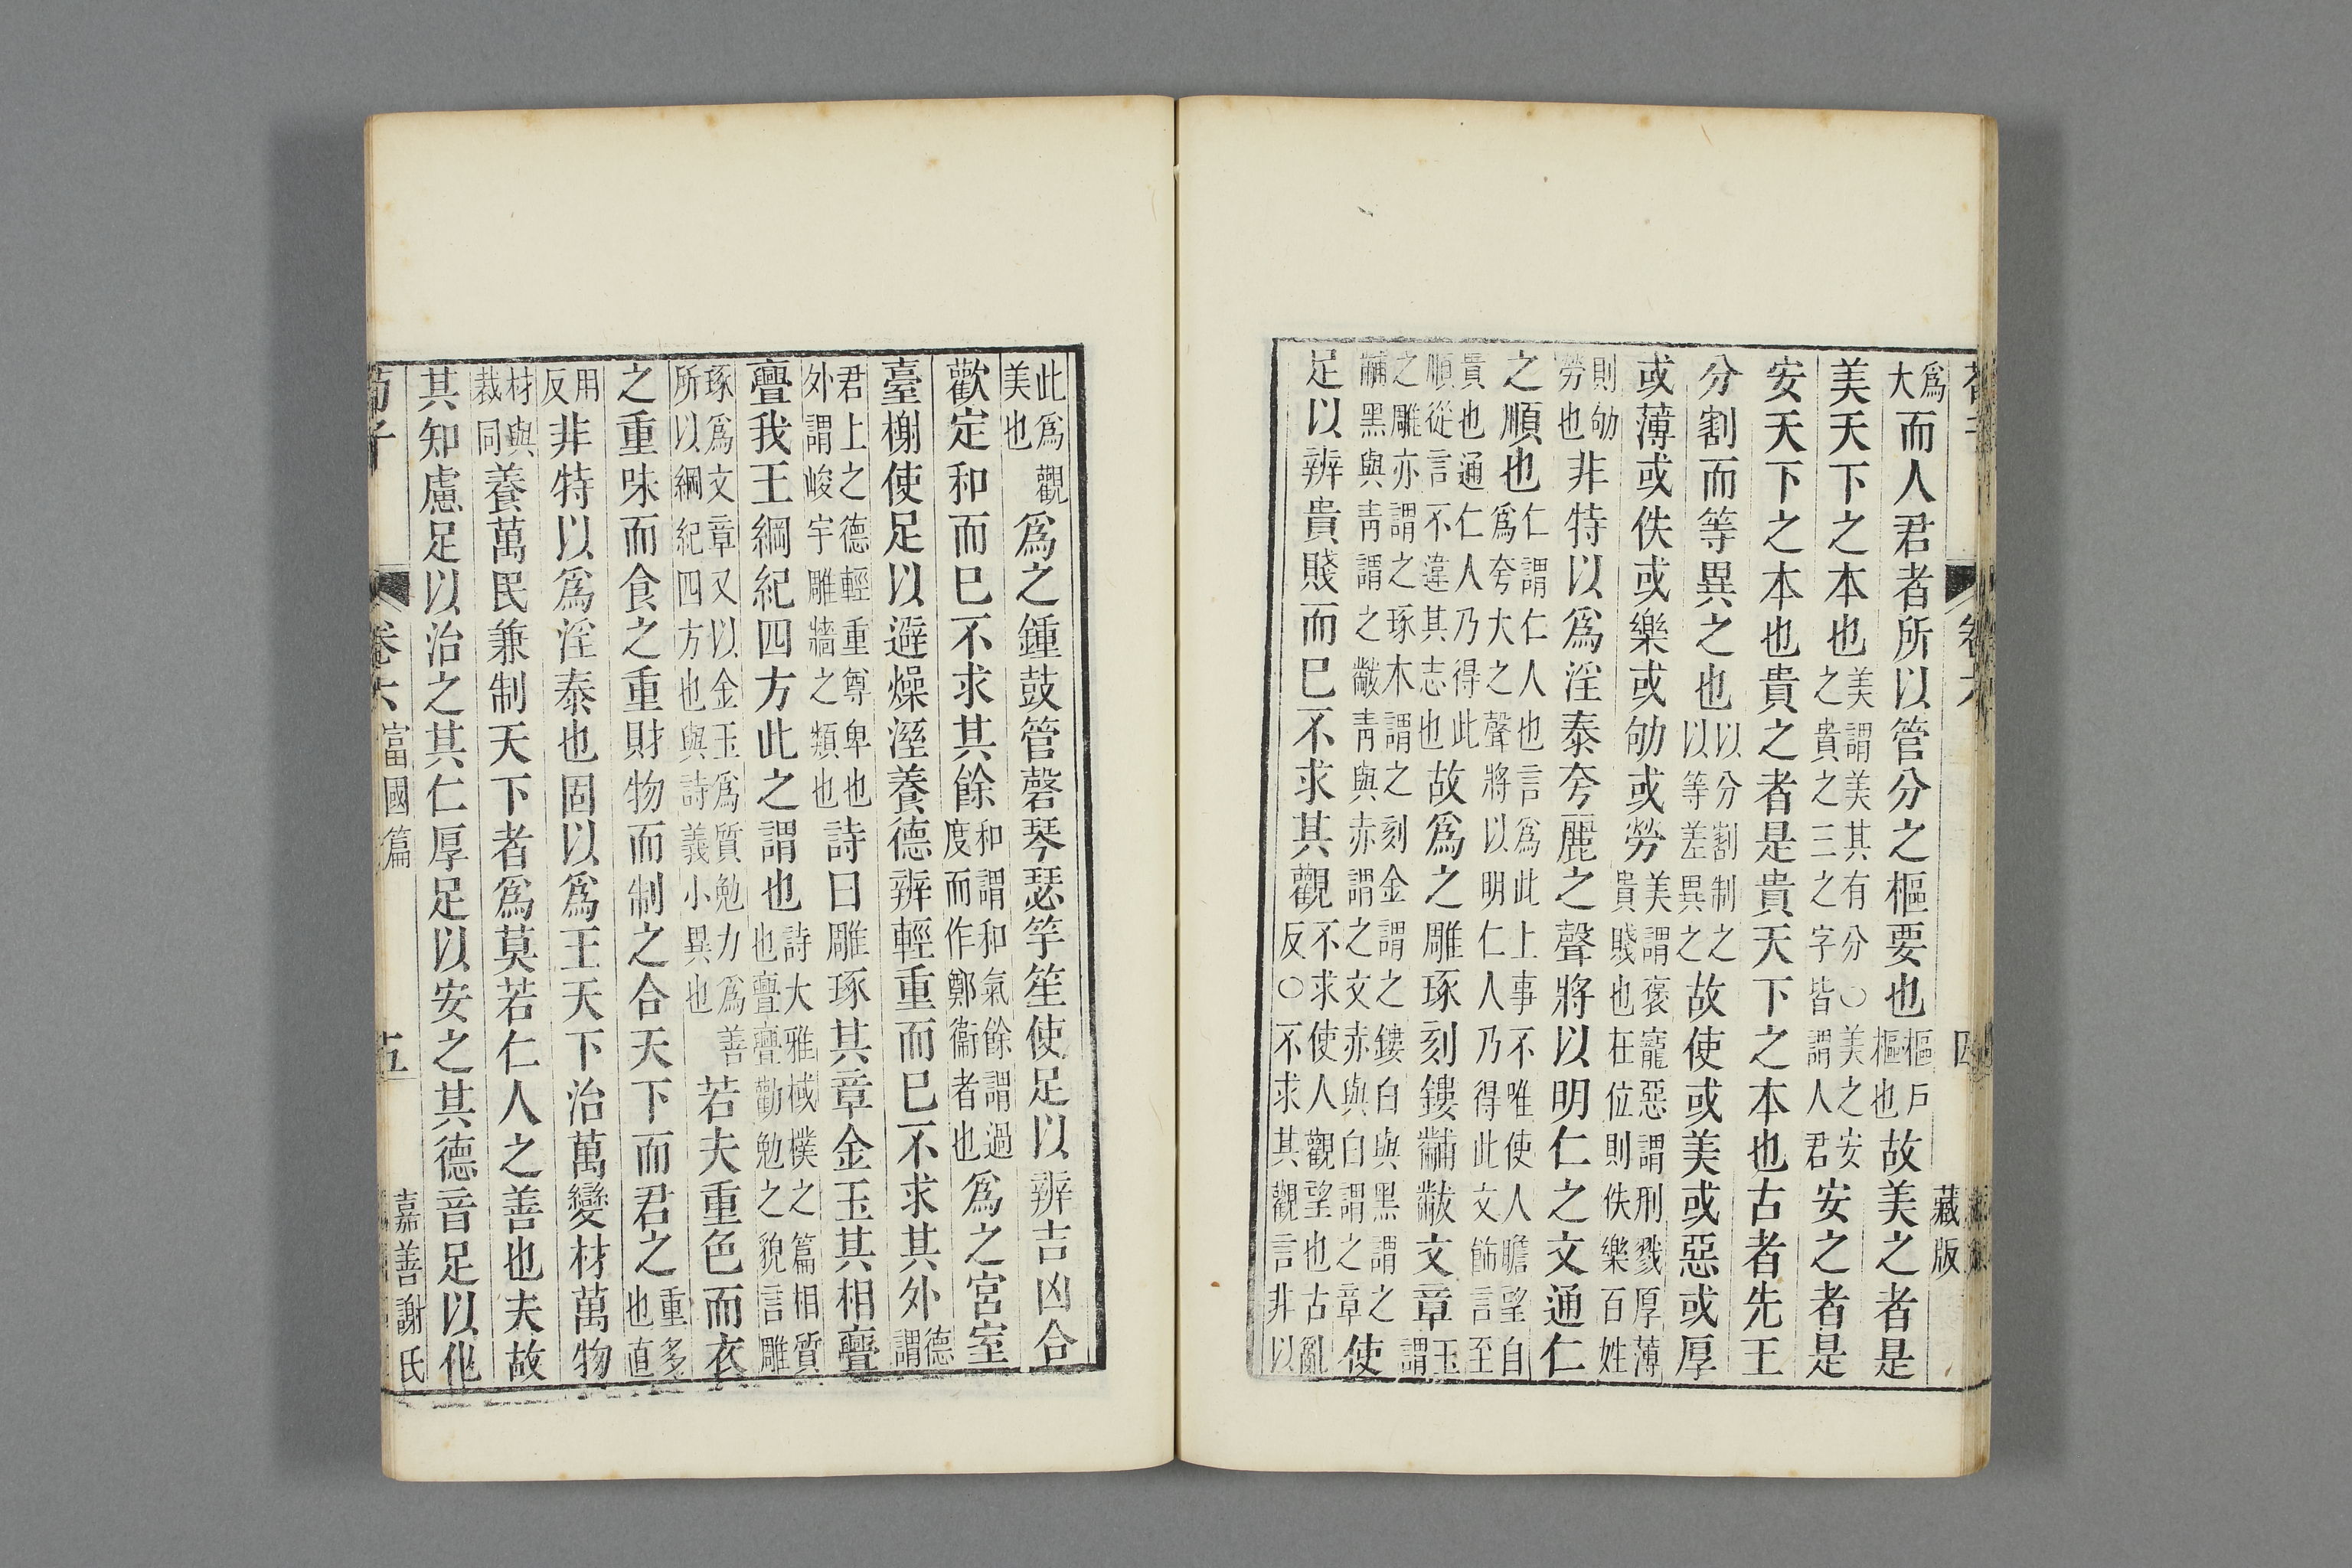 藏版
爲大而人君者所以管分之樞要也樞戶樞也故美之者是
美天下之本也美謂美其有分○美之安之貴之三之字皆謂人君安之者是
安天下之本也貴之者是貴天下之本也古者先王
分割而等異之也以分割制之以等差異之故使或美或惡或厚
或薄或佚或樂或劬或勞美謂褒寵惡謂刑戮厚薄貴賤也在位則佚樂百姓
則劬勞也非特以爲淫泰夸麗之聲將以明仁之文通仁
之順也仁謂仁人也言爲此上事不唯使人瞻望自爲夸大之聲將以明仁人乃得此文飾言至
貴也通仁人乃得此順從言不違其志也故爲之雕琢刻鏤黼黻文章玉謂
之雕亦謂之琢木謂之刻金謂之鏤白與黑謂之黼黑與靑謂之黻靑與赤謂之文赤與白謂之章使
足以辨貴賤而已不求其觀不求使人觀望也古亂反○不求其觀言非以
此爲觀美也爲之鍾鼓管磬琴瑟竽笙使足以辨吉凶合
歡定和而已不求其餘和謂和氣餘謂過度而作鄭衞者也爲之宮室
臺榭使足以避燥溼養德辨輕重而已不求其外德謂
君上之德輕重尊卑也外謂峻宇雕牆之類也詩曰雕琢其章金玉其相亹
亹我王綱紀四方此之謂也詩大雅棫樸之篇相質也亹亹勸勉之貌言雕
琢爲文章又以金玉爲質勉力爲善所以綱紀四方也與詩義小異也若夫重色而衣
之重味而食之重財物而制之合天下而君之重多也直
用反非特以爲淫泰也固以爲王天下治萬變材萬物
材與裁同養萬民兼制天下者爲莫若仁人之善也夫故
其知慮足以治之其仁厚足以安之其德音足以化
荀子 卷六 富國篇 五 嘉善謝氏